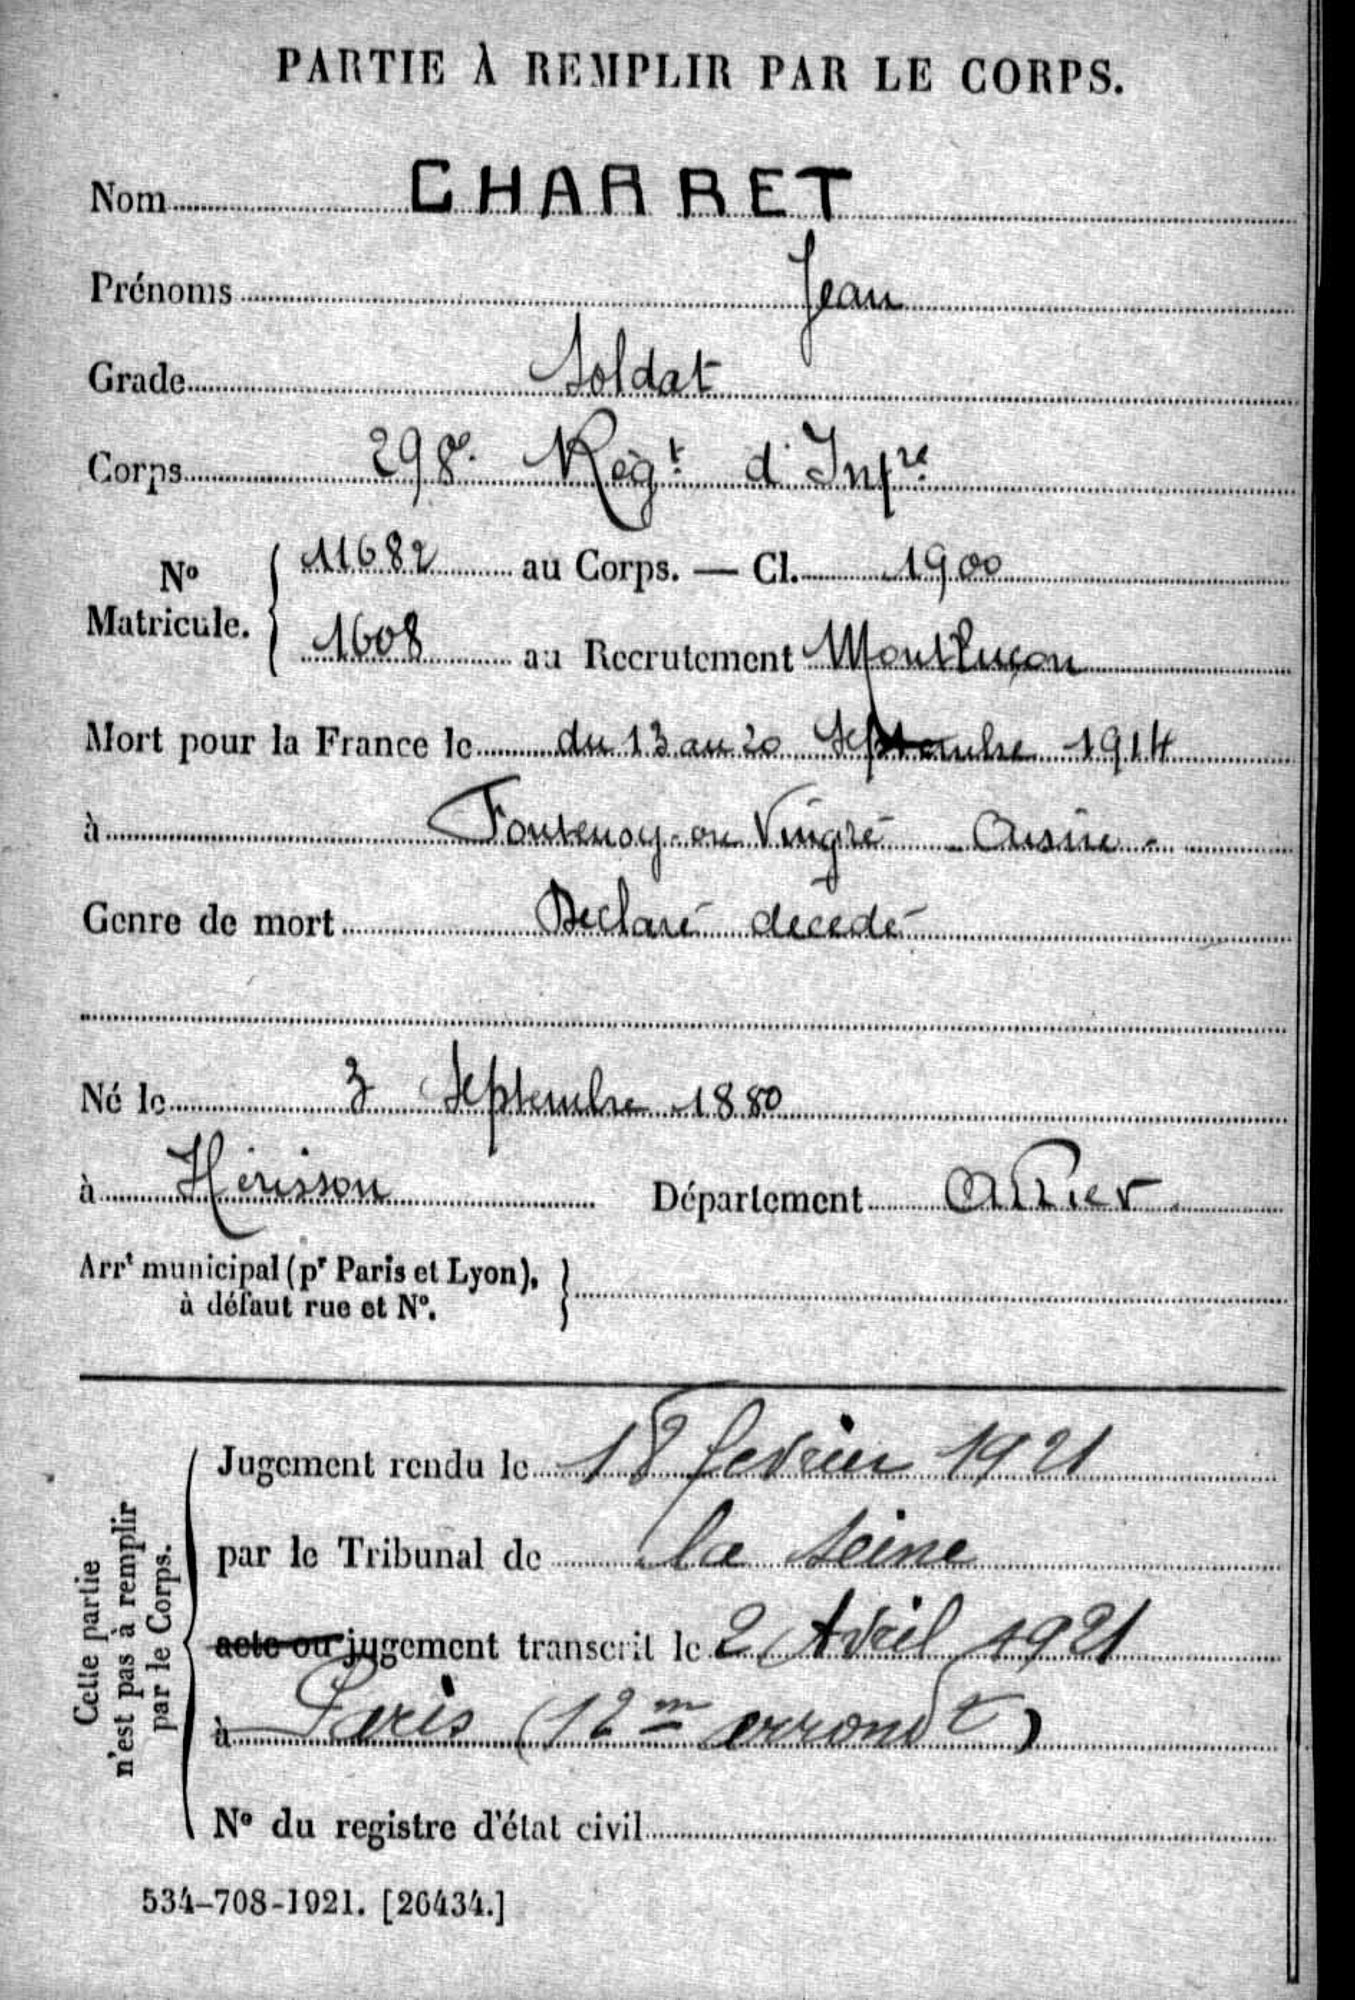 PARTIE À REMPLIR PAR LE CORPS.
Nom CHARRET
Prénoms Jean
Grade Soldat
Corps 298e. Régt. d'Infre.
No Matricule. { 11682 au Corps. — Cl. 1900
1608 au Recrutement Montluçon
Mort pour la France le du 13 au 20 Septembre 1914
à Fontenoy ou Vingré - Aisne -
Genre de mort Déclaré décédé
Né le 3 Septembre 1880
à Hérisson Département Allier
Arrt municipal (pr Paris et Lyon), }
à défaut rue et No.
Cette partie
n'est pas à remplir
par le Corps.
Jugement rendu le 18 février 1921
par le Tribunal de la Seine
acte ou jugement transcrit le 2 Avril 1921
à Paris (12me arrondt)
No du registre d'état civil
534-708-1921. [26434.]